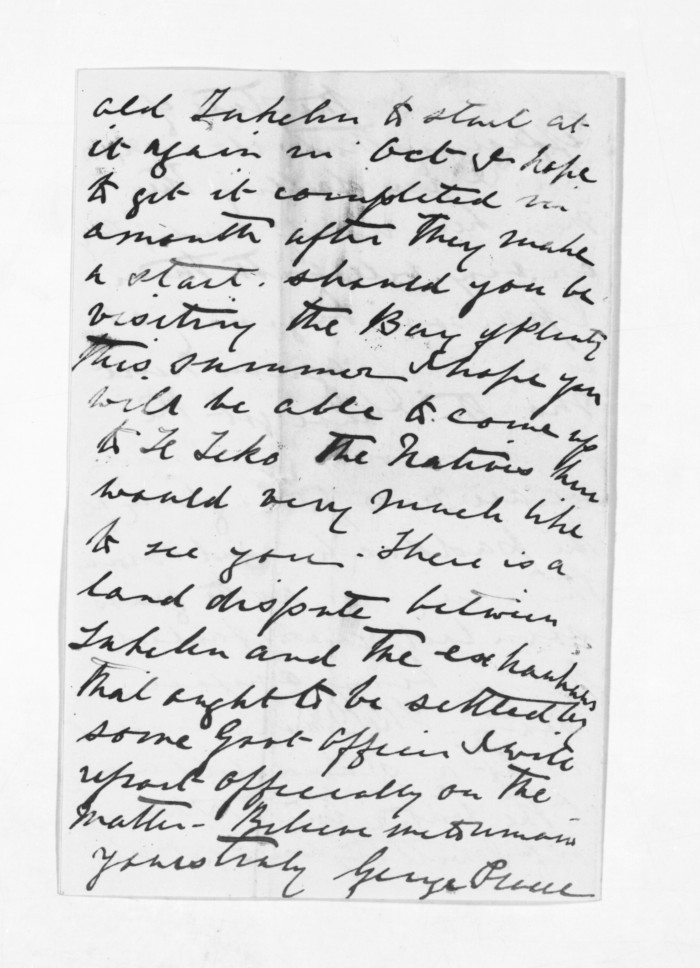 old Tukehu to start at
it again in Oct I hope
to get it completed in
a month after they make
a start. should you be
visiting the Bay of Plenty
this summer I hope you
will be able to come up
to Te Teko the Natives here
would very much like
to see you. There is a
land dispute between
Tukehu and the exhauhaus
that ought to be settled by
some Govt Officer I will
report officially on the
matter - Believe me to remain
yours truly George Preece